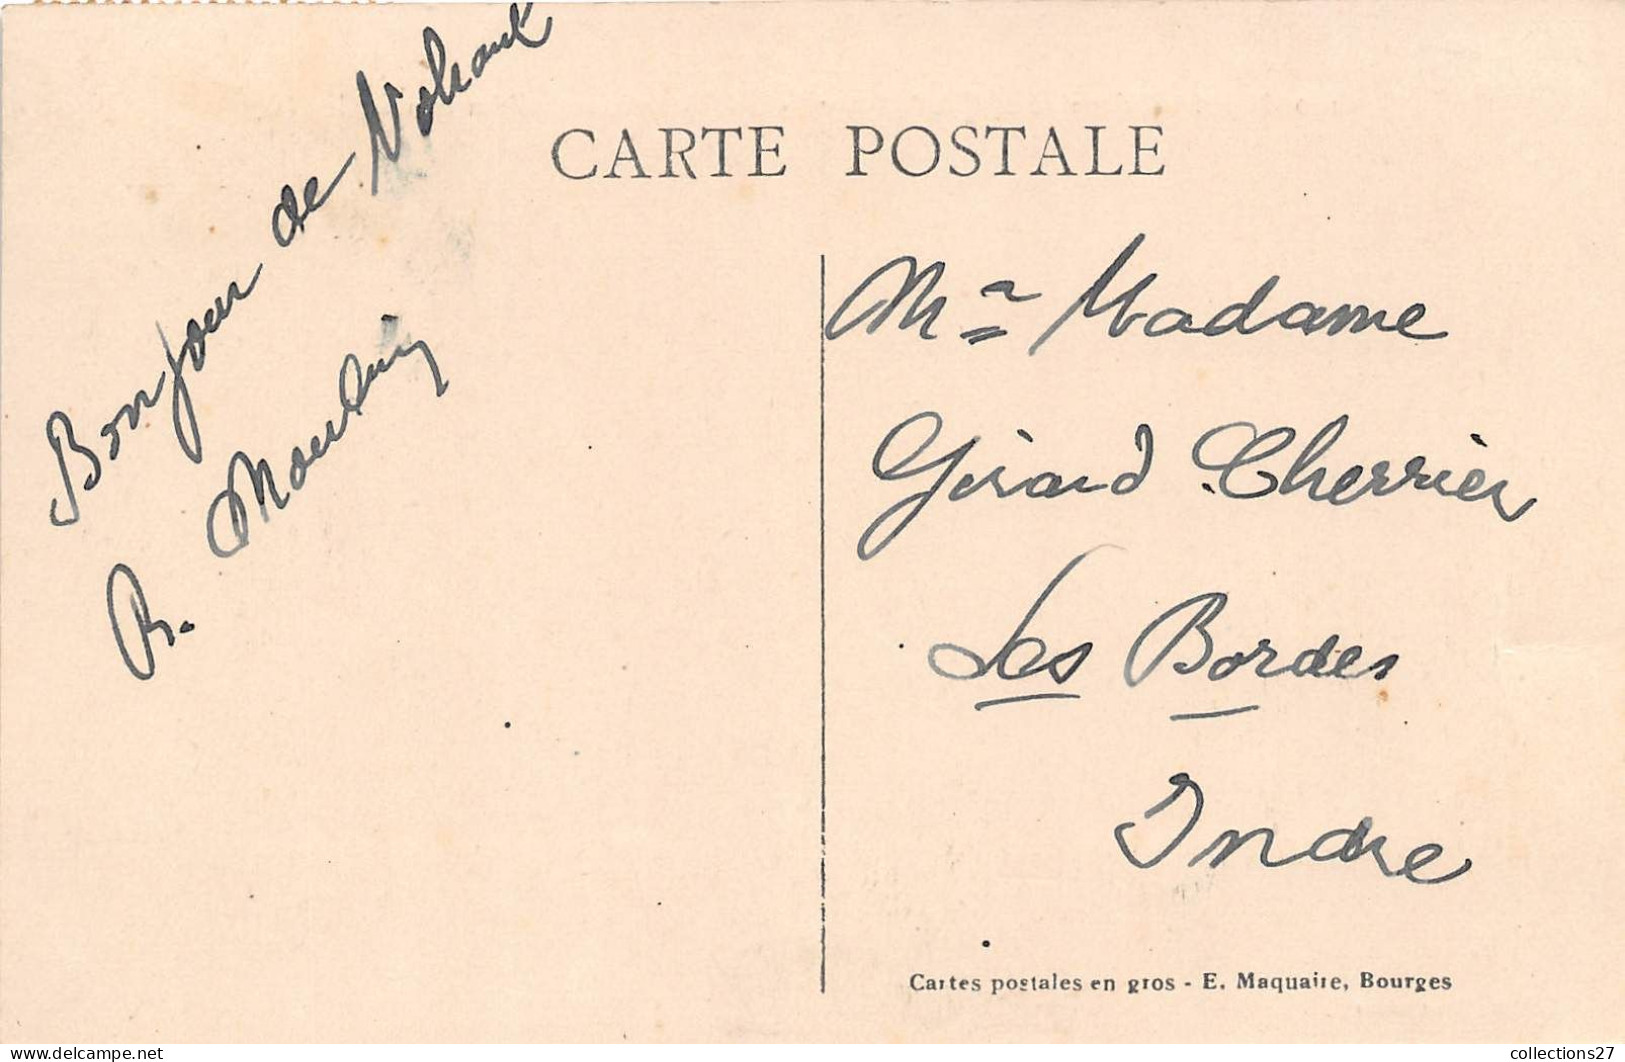 CARTE POSTALE
Bonjour de Nohant
R. Moulin
Mr Madame
Girard Cherrier
Les Bordes
Indre
Cartes postales en gros - E. Maquaire, Bourges
collections27